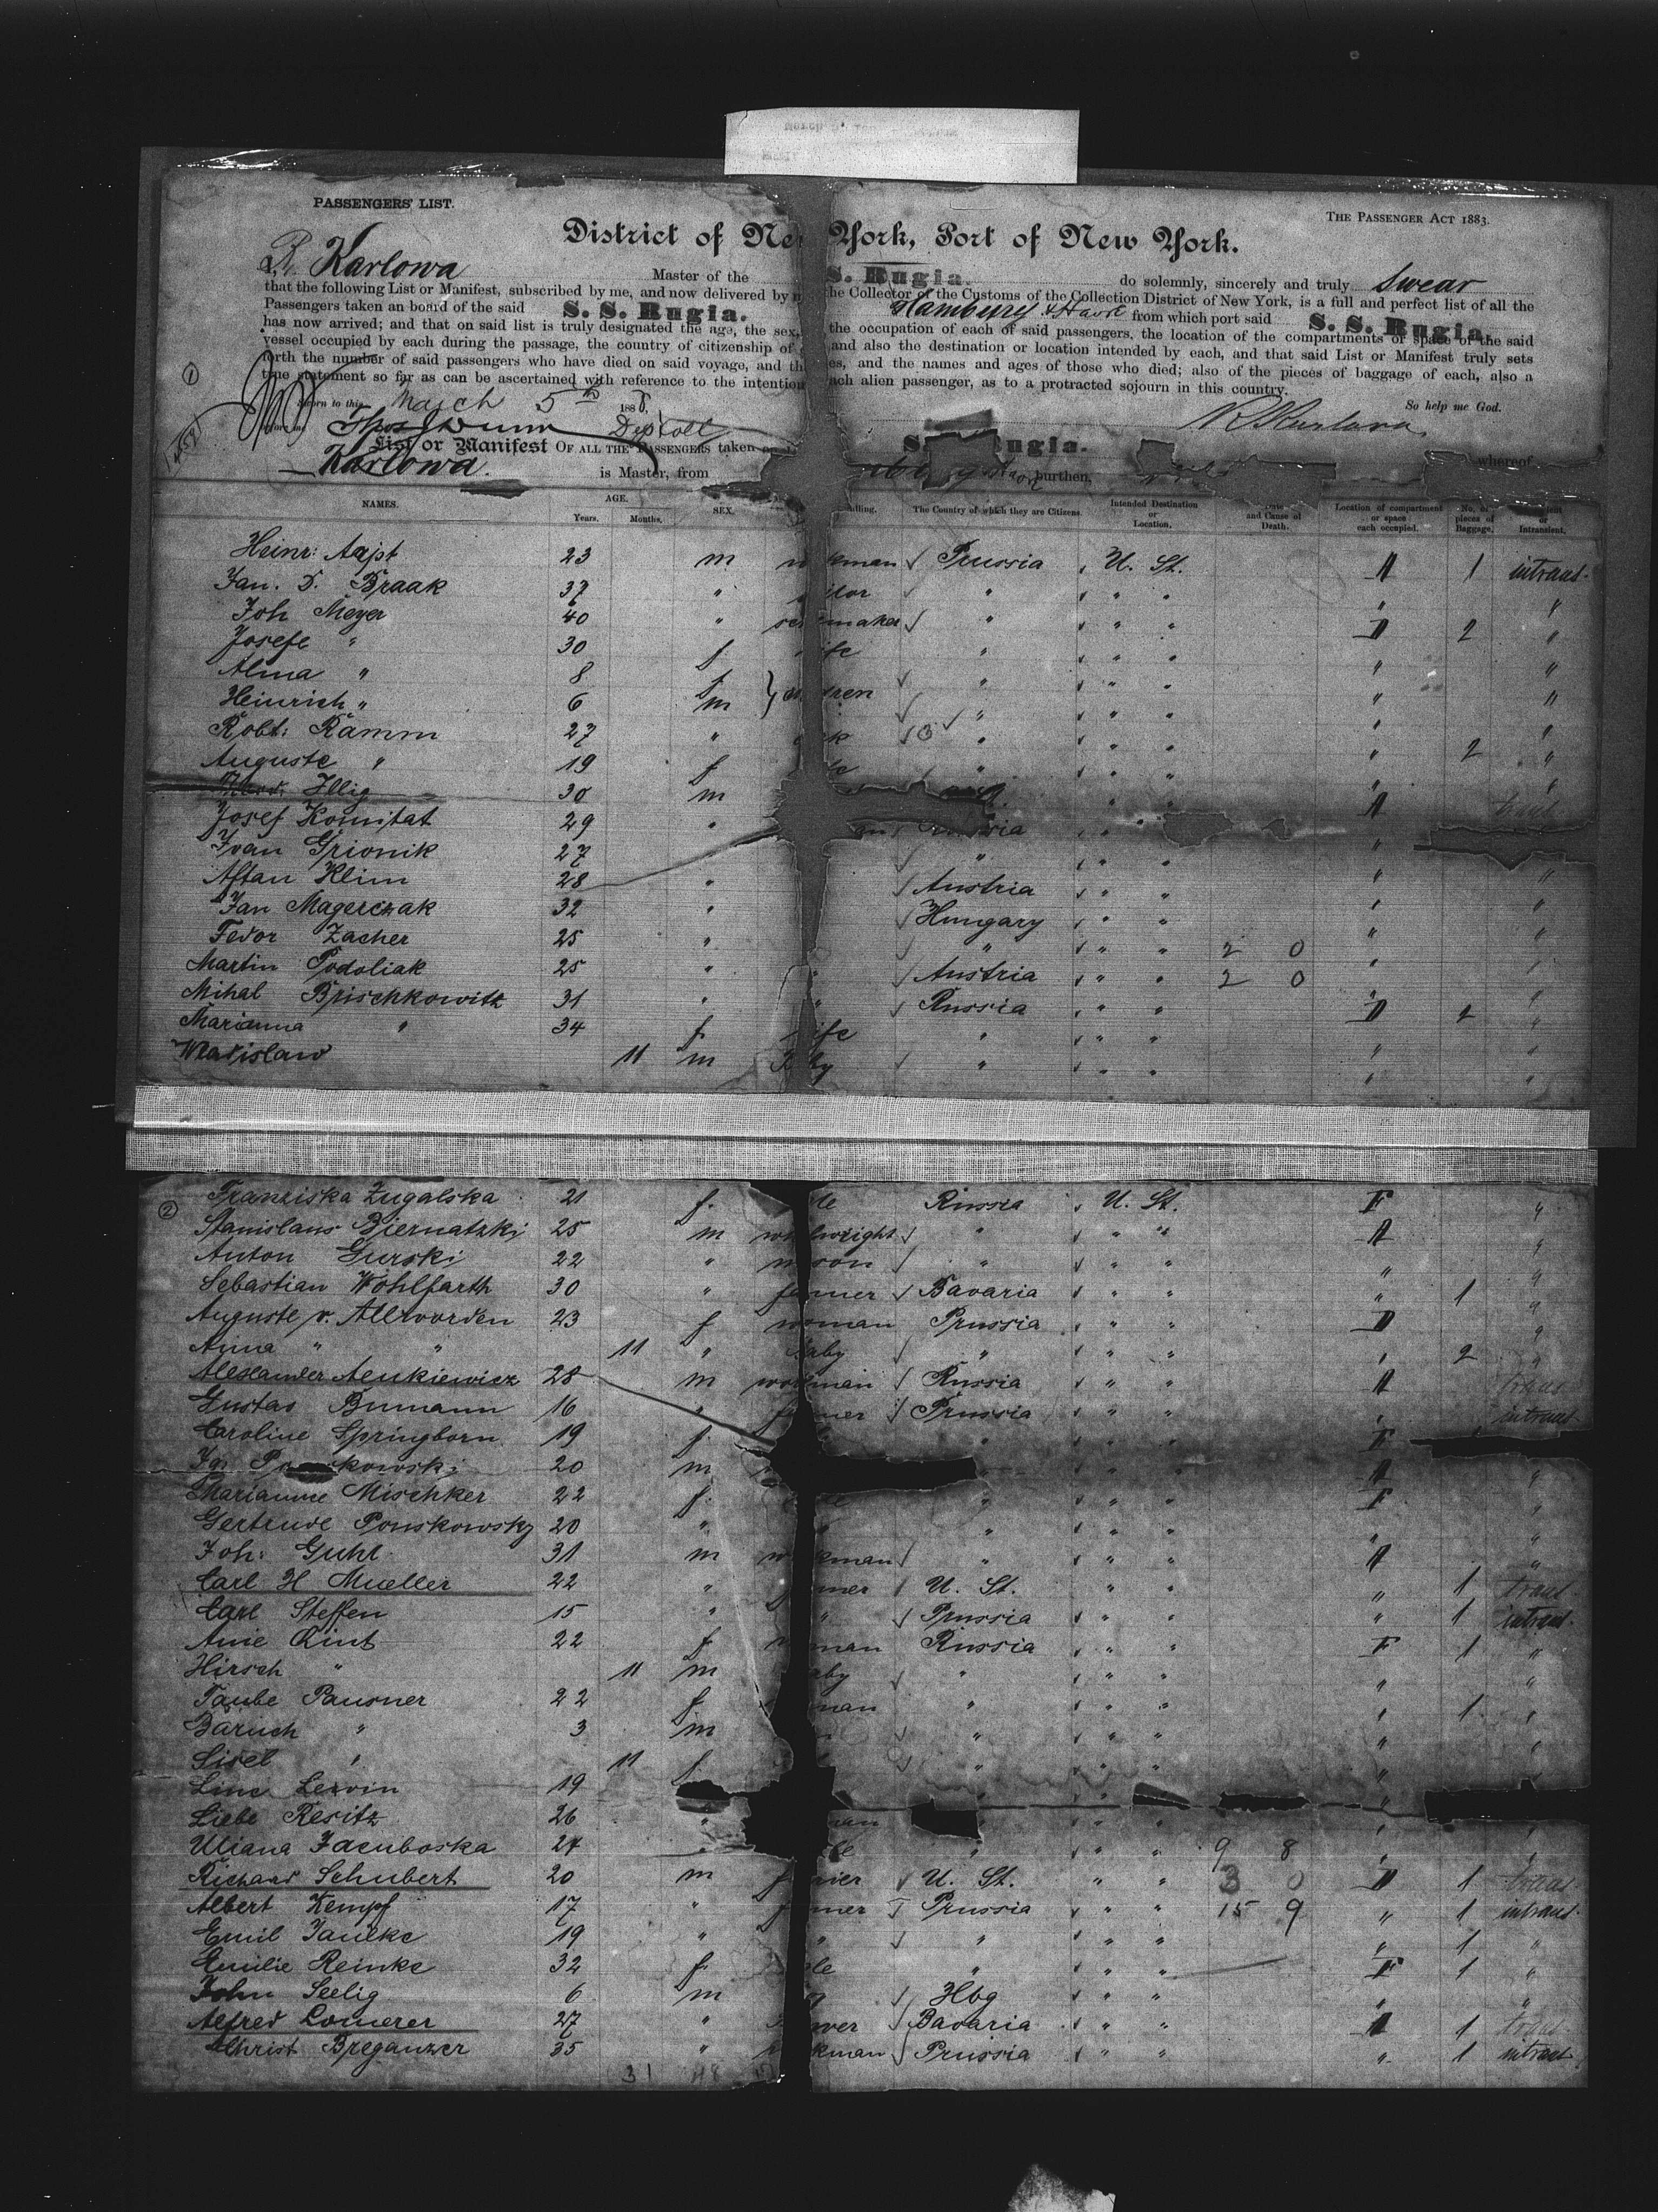 PASSENGERS' LIST.
THE PASSENGER ACT 1883.
District of New York, Port of New York.
I, R. Karlowa Master of the S. S. Rugia. do solemnly, sincerely and truly swear
that the following List or Manifest, subscribed by me, and now delivered by m the Collector of the Customs of the Collection District of New York, is a full and perfect list of all the
Passengers taken on board of the said S. S. Rugia. Hamburg & Havre from which port said S. S. Rugia.
has now arrived; and that on said list is truly designated the age, the sex, the occupation of each of said passengers, the location of the compartments or space of the said
vessel occupied by each during the passage, the country of citizenship of and also the destination or location intended by each, and that said List or Manifest truly sets
forth the number of said passengers who have died on said voyage, and th es, and the names and ages of those who died; also of the pieces of baggage of each, also a
true statement so far as can be ascertained with reference to the intention ach alien passenger, as to a protracted sojourn in this country.
1
Sworn to this March 5th 1888, So help me God.
R Karlowa
List or Manifest OF ALL THE PASSENGERS taken S. Rugia. whereof
Karlowa. is Master, from burthen,
NAMES. AGE. Years. Months. SEX. Calling. The Country of which they are Citizens. Intended Destination or Location. Date and Cause of Death. Location of compartment or space each occupied. No. of pieces of Baggage. or Intransient.
Heinr: Aapt 23 m kman Prussia U. St. A 1 intrans.
Jan. D. Braak 37 " ilor " " " " "
Joh Meyer 40 " maker " " " D 2 "
Josefe " 30 f ife " " " " "
Alma " 8 f } " " " " "
Heinrich " 6 m } dren " " " " "
Robt: Ramm 27 " k " " " " 2 "
Auguste " 19 f " " " " "
Illig 30 m " " A
Josef Komitat 29 " an Russia " "
Ivan Grionik 27 " " " " "
Aftan Klim 28 " Austria " " " "
Jan Magerczak 32 " Hungary " " " "
Fedor Zacher 25 " " " " 2 0 " "
Martin Podoliak 25 " " Austria " " 2 0 " "
Mihal Brischkowitz 31 " " Russia " " D 2 "
Marianna " 34 f ife " " " " "
Wladislaw 11 m by " " " " "
2
Franziska Zugalska 21 f. le Russia U. St. F "
Stanislaus Biernatzki 25 m wheelwright " " " A "
Anton Gurski 22 " mason " " " " "
Sebastian Wohlfarth 30 " farmer Bavaria " " " 1 "
Auguste v. Allwörden 23 f woman Prussia " " D "
Anna " " 11 " baby " " " " 2 "
Alexander Alukiewicz 28 m workman Russia " " A trans
Gustav Bumann 16 " farmer Prussia " " " intrans.
Caroline Springborn 19 f. " " " F
kowski 20 m " " " A "
Marianne Mischker 22 f. le " " " F "
Gertrude Ponskowsky 20 " " " " " "
Joh: Guhl 31 m workman " " " A "
Carl H Mueller 22 " mer U. St. " " " 1 trans
Carl Steffen 15 " " Prussia " " " 1 intrans.
Anie Rint 22 f man Russia " " F 1 "
Hirsch " 11 m aby " " " " "
Taube Pausner 22 f man " " " " 1 "
Baruch " 3 m " " " " "
Sisel " 11 f " " "
Line Lewin 19 "
Liebe Resitz 26 " man " " " "
Uliana Jacuboska 27 " le " " " 9 8 " "
Richard Schubert 20 m U. St. " " 3 0 D 1 trans
Albert Kempf 17 " mer Prussia " " 15 9 " 1 intrans.
Emil Jaulke 19 " " " " " " 1 "
Emilie Reinke 32 f. le " " " F 1 "
John Seelig 6 m Hbg " " " "
Alfred Lomerer 27 " Bavaria " " A 1 trans
Christ Breganzer 35 " kman Prussia " " " 1 intrans.
31 48